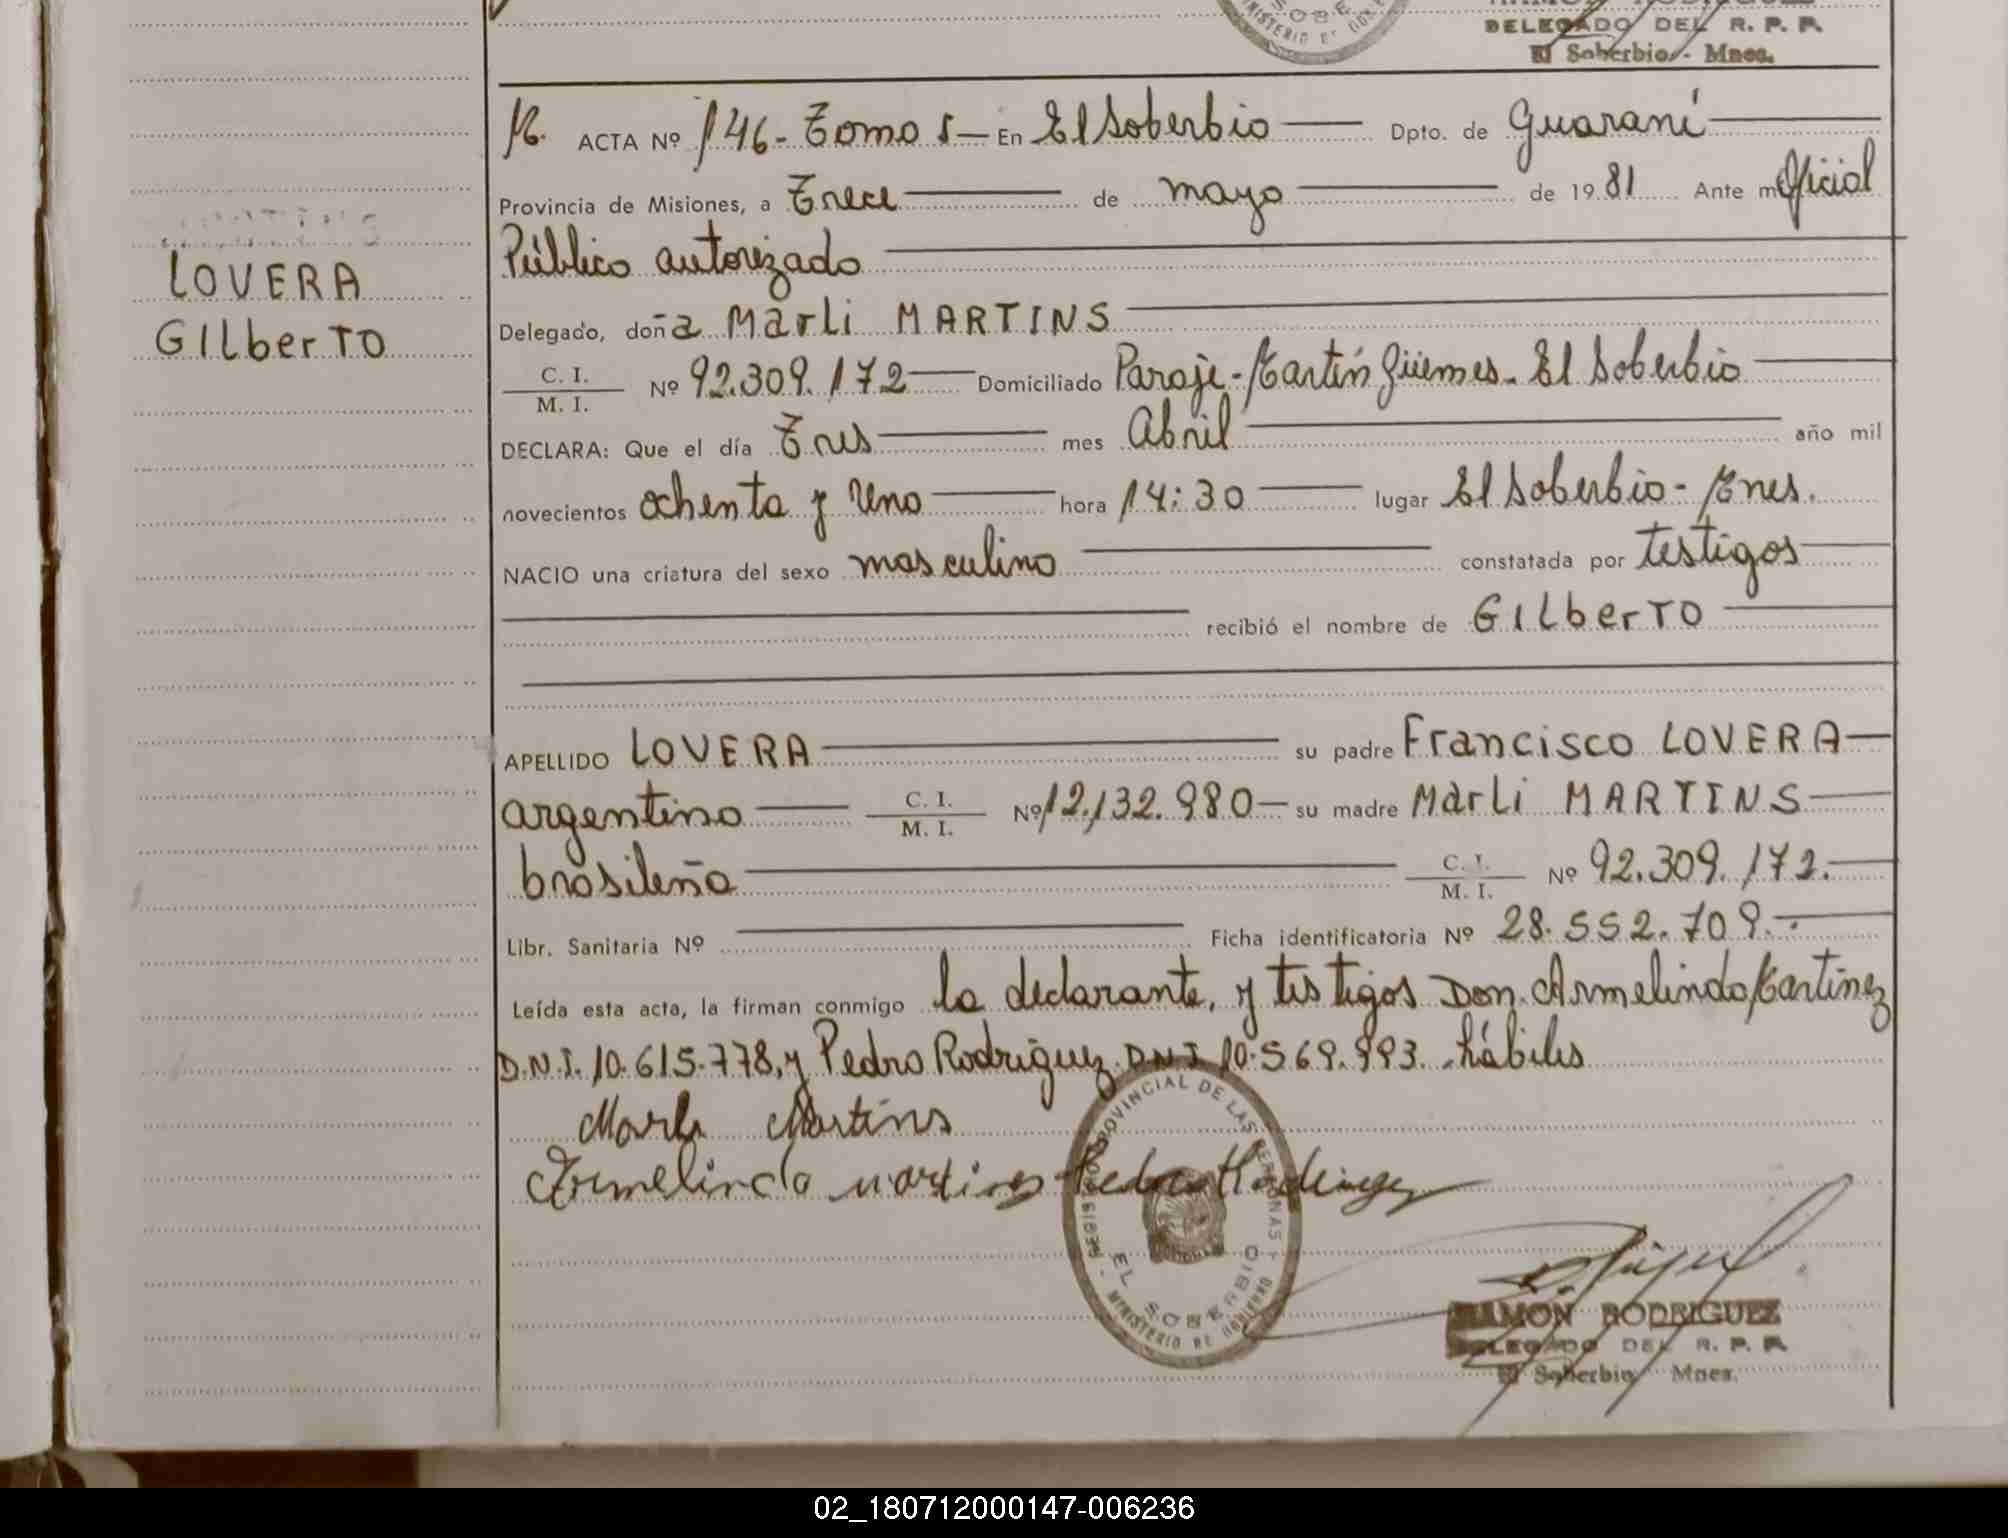 DELEGADO DEL R. P. P.
El Soberbio - Mnes.
M. ACTA Nº 146 - Tomo 1 — En El Soberbio — Dpto. de Guaraní
Provincia de Misiones, a Trece de mayo de 1981 Ante mí Oficial
Público autorizado
LOVERA
GILberTO
Delegado, doña Marli MARTINS
C. I.
M. I.
Nº 92.309.172 Domiciliado Paraje - Martín Güemes - El Soberbio
DECLARA: Que el día Tres mes Abril año mil
novecientos ochenta y Uno hora 14:30 lugar El Soberbio - Mnes.
NACIO una criatura del sexo masculino constatada por testigos
recibió el nombre de GILberTO
APELLIDO LOVERA su padre Francisco LOVERA
argentino C. I.
M. I.
Nº 12.132.980 — su madre Marli MARTINS
brasileña C. I.
M. I.
Nº 92.309.172.
Libr. Sanitaria Nº Ficha identificatoria Nº 28.552.709.-
Leída esta acta, la firman conmigo la declarante, y testigos Don. Armelindo Martinez
D.N.I. 10.615.778, y Pedro Rodriguez D.N.I. 10.569.993. hábiles
Marli Martins
Armelindo Martines Pedro Rodriguez
REGISTRO PROVINCIAL DE LAS PERSONAS
EL SOBERBIO
MINISTERIO DE GOBIERNO
RAMÓN RODRIGUEZ
DELEGADO DEL R. P. P.
El Soberbio Mnes.
02_180712000147-006236